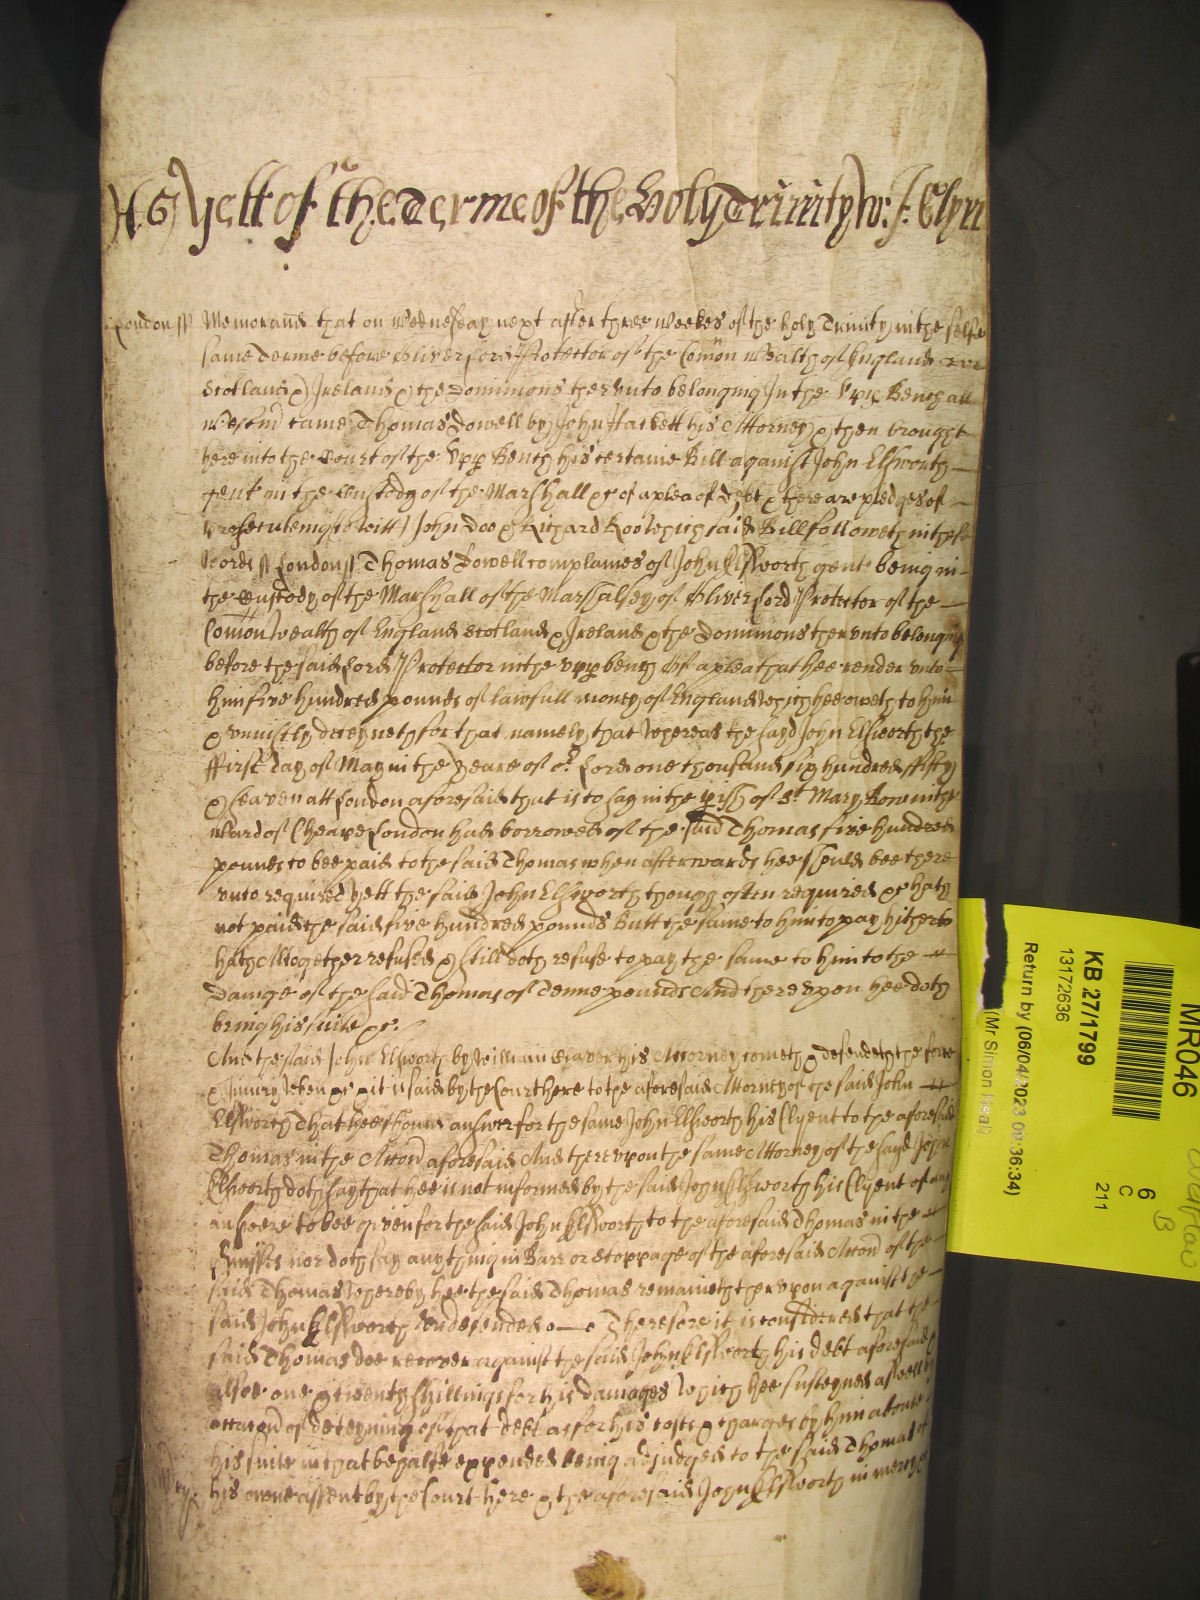 Yett of the Terme of the Holy Trinity W: J: Glyn
London ss Memorand that on Wednesday next after three Weekes of the holy Trinity in the selfe
same Terme before Oliver Lord Protector of the Comon Wealth of England
Scotland & Ireland & the Dominions thervnto belonging In the Vpp Bench att
Westm came Thomas Dowell by John Hackett his Attorney & then brought
here into the Court of the Vpp Bench his certaine Bill against John Elsworth
gent in the Custody of the Marshall &c of a plea of debt & there are pledges of
prosecuteing (to witt) John Doo & Richard Roo which said Bill followeth in these
words ss London ss Thomas Dowell complaines of John Elsworth gent being in
the Custody of the Marshall of the Marshalsey of Oliver Lord Protector of the
Comon Wealth of England Scotland & Ireland & the Dominions thervnto belonging
before the said Lord Protector in the vpp bench Of a plea that hee render vnto
him five hundred pounds of lawfull money of England which hee oweth to him
& vniustly deteyneth for that namely that Whereas the sayd John Elsworth the
ffirst day of May in the yeare of or Lord one thousand six hundred ffifty
& seaven att London aforesaid that is to say in the pish of St Mary Bow in the
Ward of Cheape London had borrowed of the said Thomas five hundred
pounds to bee paid to the said Thomas when afterwards hee should bee there
vnto required yett the said John Elsworth though often required &c hath
not paid the said five hundred pounds Butt the same to him to pay hitherto
hath Altogether refused & still doth refuse to pay the same to him to the
Damage of the said Thomas of Tenne pounds And therevpon hee doth
bring his suite &c.
And the said John Elsworth by William his Attorney cometh & defendeth the force
& Iniury When &c & it is said by the Court here to the aforesaid Attorney of the said John
Elsworth That hee should answer for the same John Elsworth his Clyent to the aforesaid
Thomas in the Accon aforesaid And therevpon the same Attorney of the sayd John
Elsworth doth say that hee is not informed by the said John Elsworth his Clyent of any
answere to bee given for the said John Elsworth to the aforesaid Thomas in the
Premisses nor doth say any thing in Barr or Stoppage of the aforesaid Accon of the
said Thomas Whereby hee the said Thomas remaineth thervpon against the
said John Elsworth vndefended Therefore it is considered that the
said Thomas doe recover against the said John Elsworth his debt aforesaid &
alsoe one & twenty shillings for his damages which hee susteyned aswell by
occasion of deteyning of that debt as for his costs & charges by him about
his suite in that behalfe expended being adjudged to the said Thomas of
his owne assent by the Court here & the aforesaid John Elsworth in mercy
Mcy.
MR046
6
C
211
KB 27/1799
13172636
Return by (06/04/2023 09:36:34)
(Mr Simon Neal)